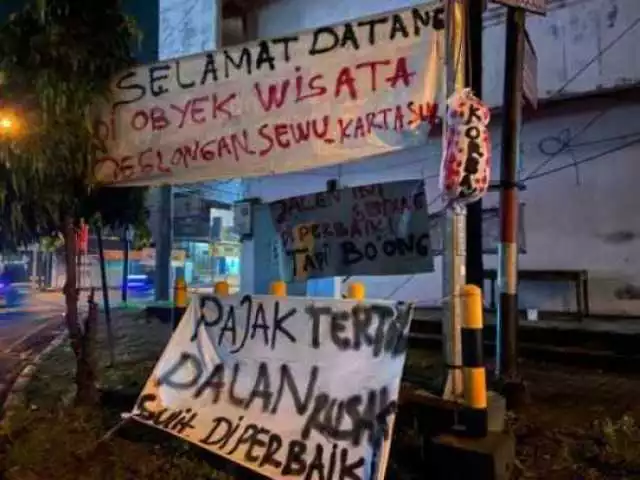 SELAMAT DATANG
DI OBYEK WISATA
JEGLONGAN SEWU KARTASU
KORBAN
JALEN INI
SEDANG
DIPERBAIKI
TAPI BO ONG
PAJAK TERTIB
DALAN RUSAK
SULIT DIPERBAIK